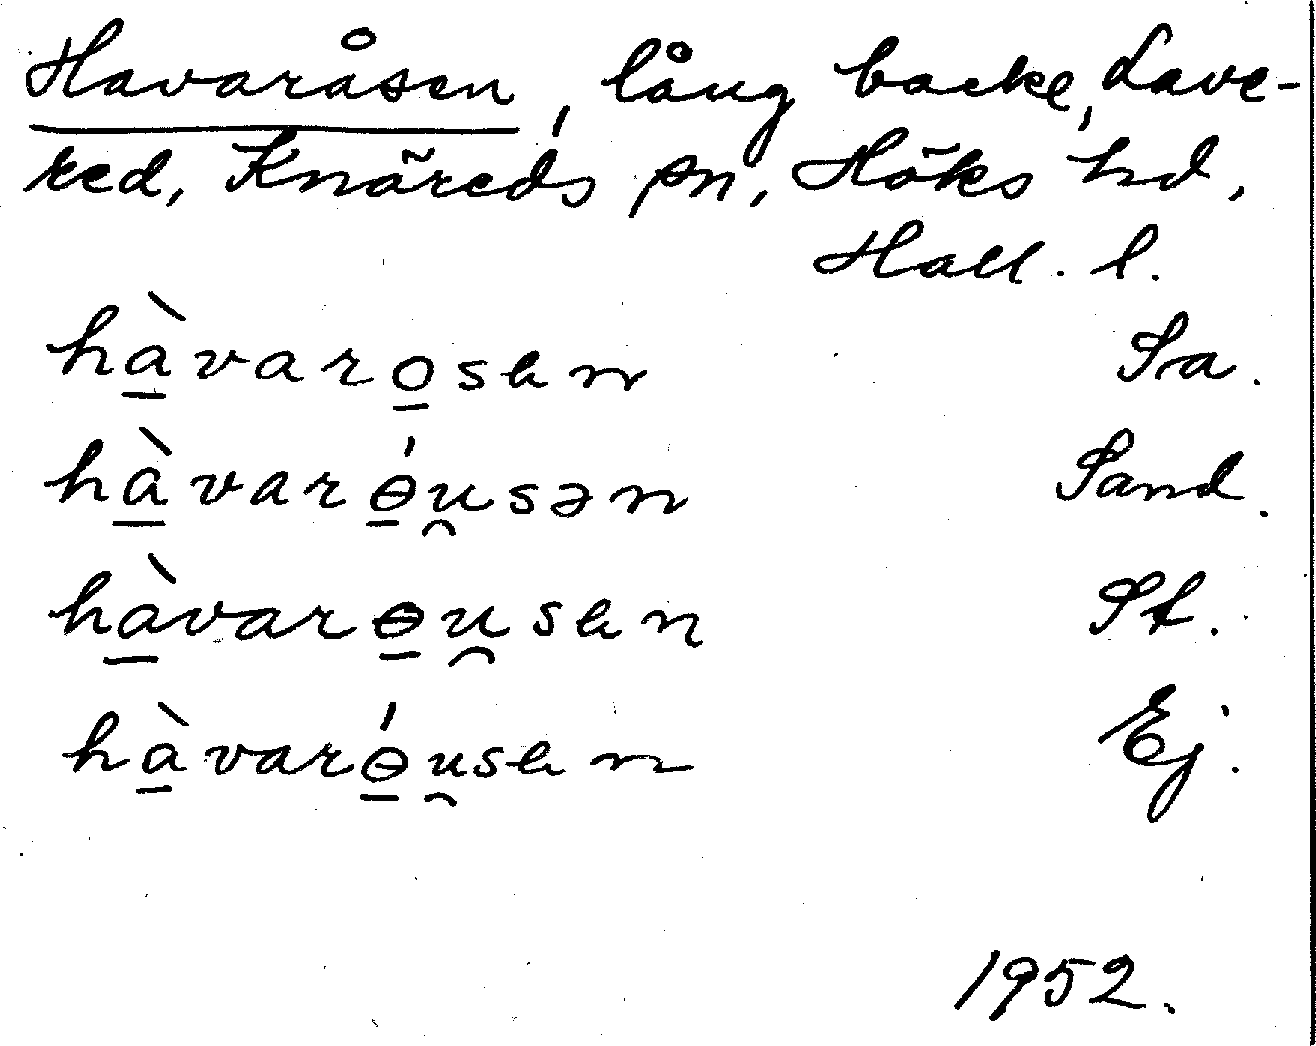 Havaråsen, lång backe, Lave-
red, Knäreds sn, Höks hd,
Hall. l.
hà̱varo̱sen Sa.
hà̱varɵ̱́u̯sən Sand.
hà̱varɵ̱u̯sen St.
hà̱varɵ̱́u̯sen Ej.
1952.